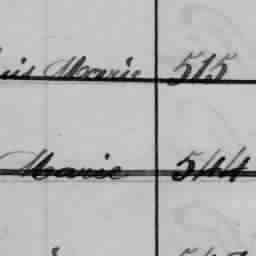 Marie 515
Marie 544